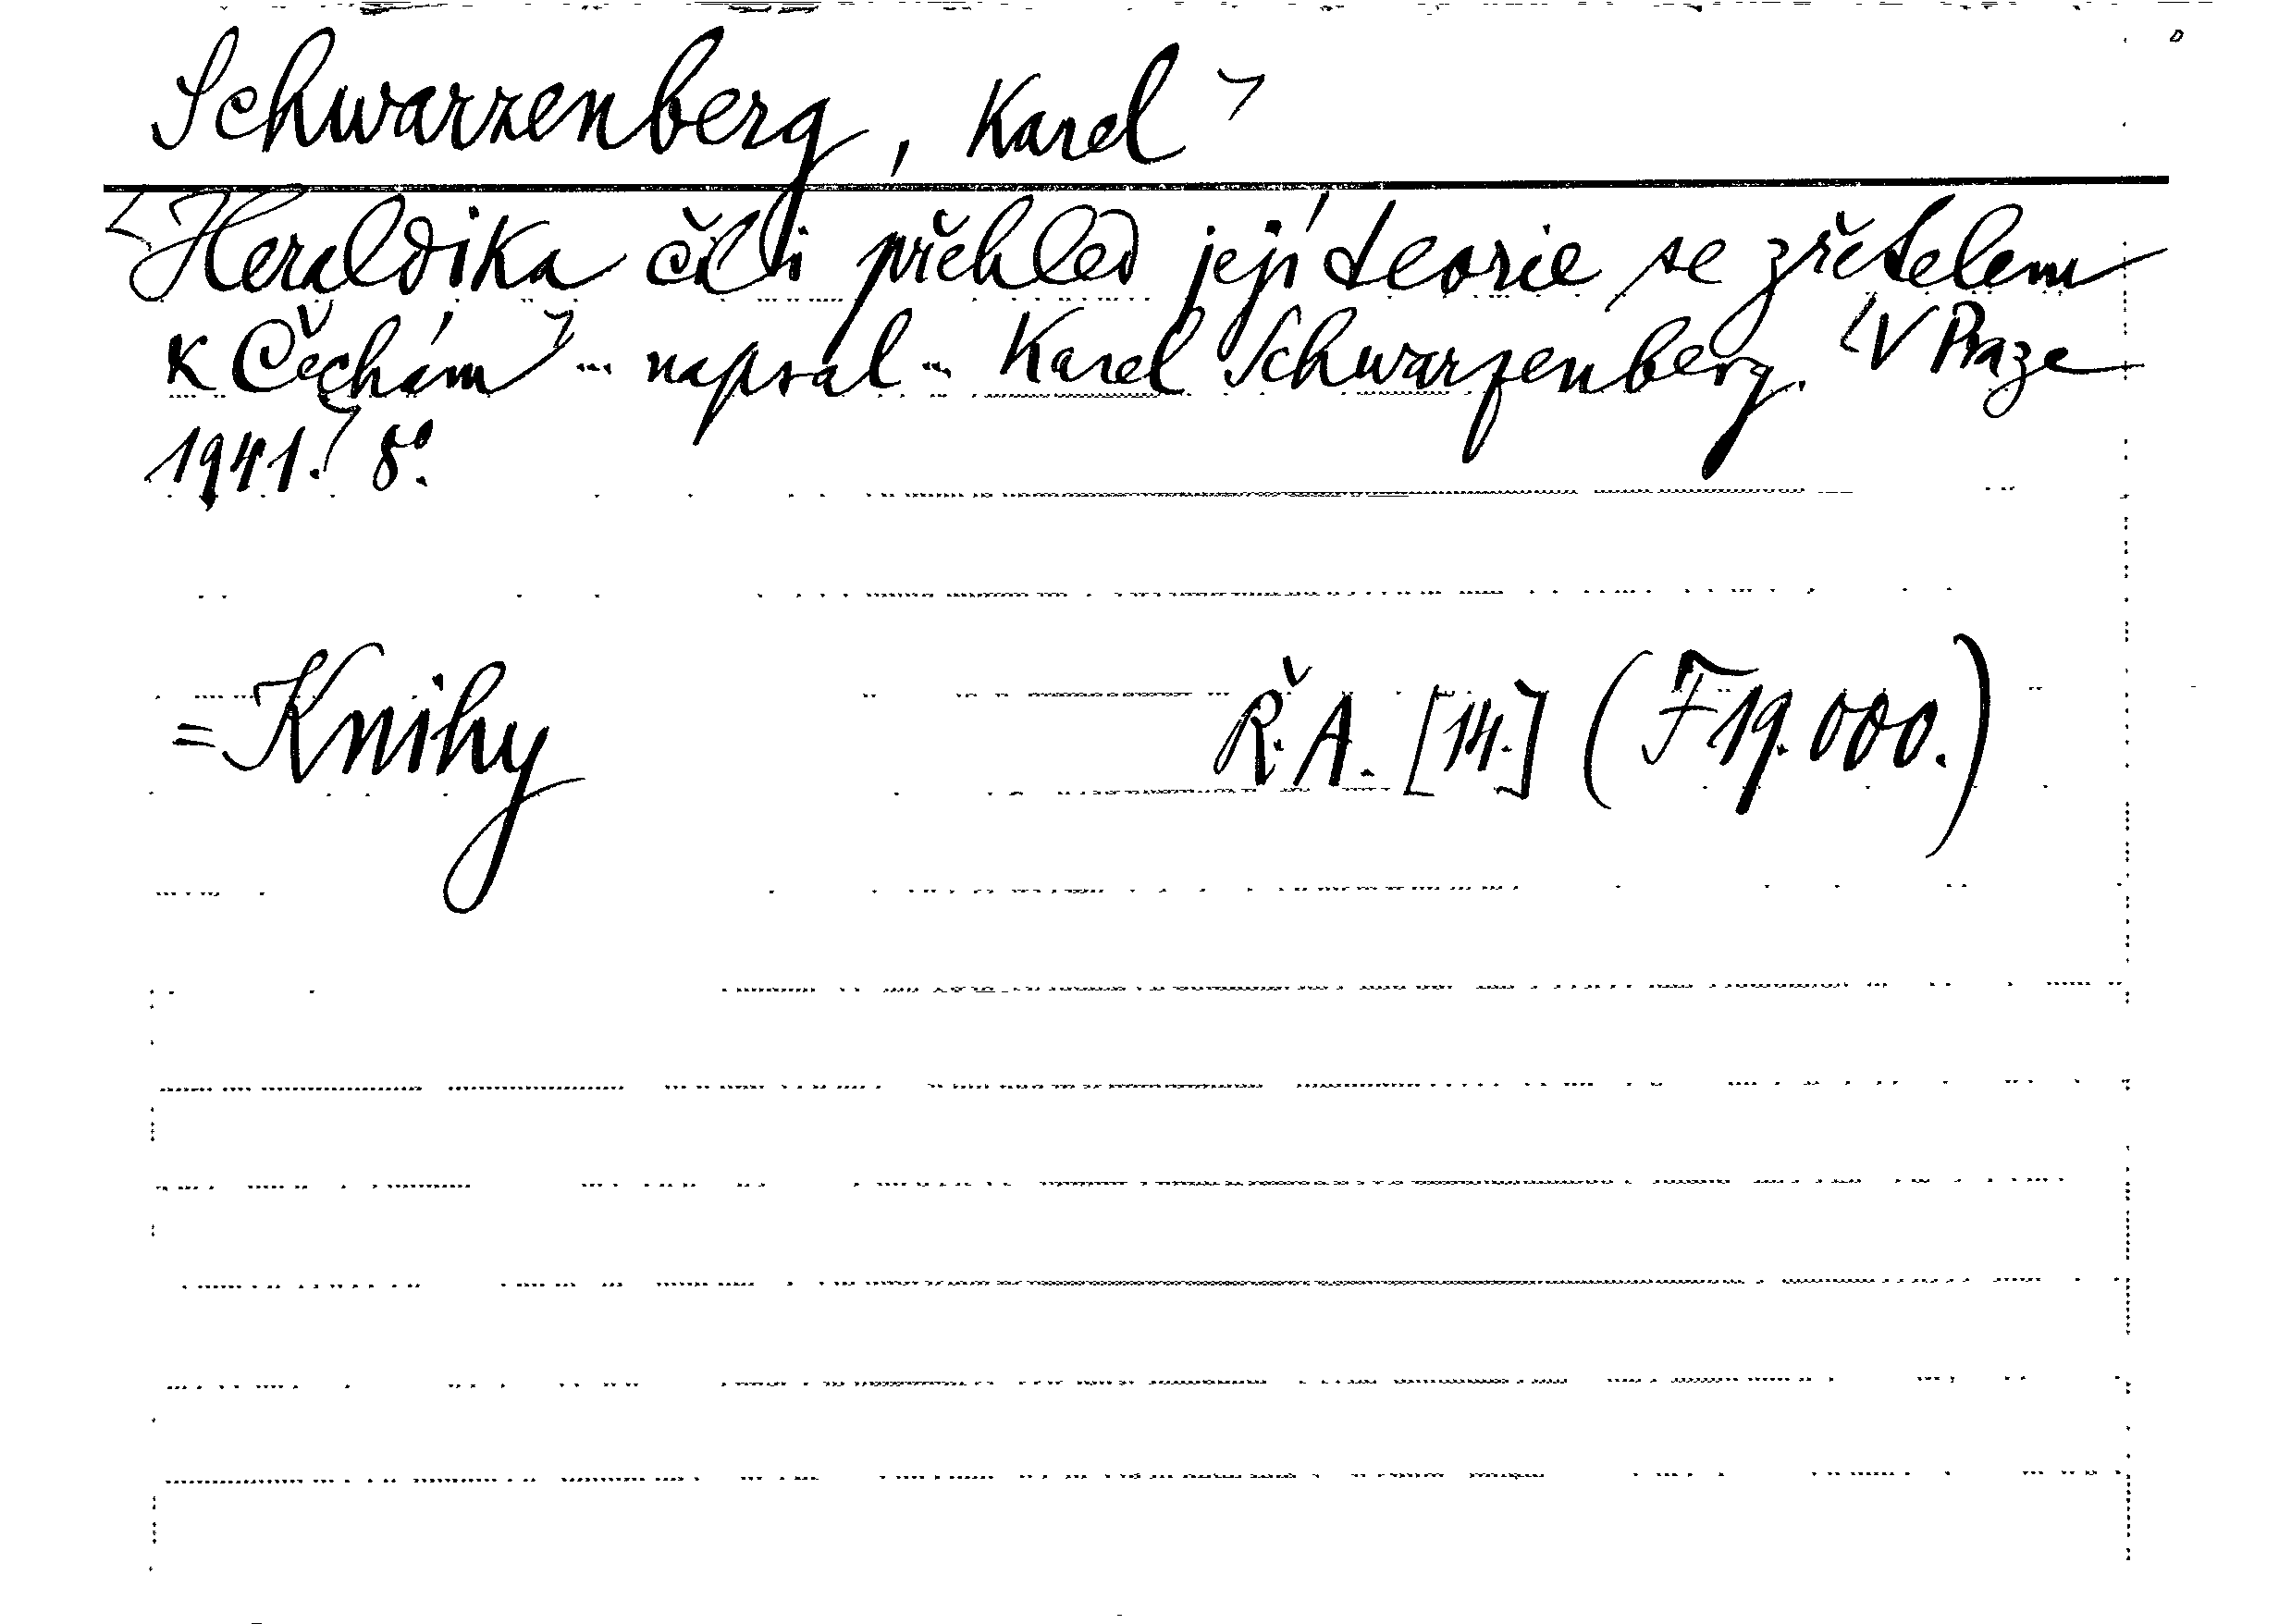 Schwarzenberg, Karel
Heraldika čili přehled její teorie se zřetelem
k Čechám ... napsal ... Karel Schwarzenberg. V Praze
1941. 8°.
= Knihy Ř. A. [14.] (F 19.000.)